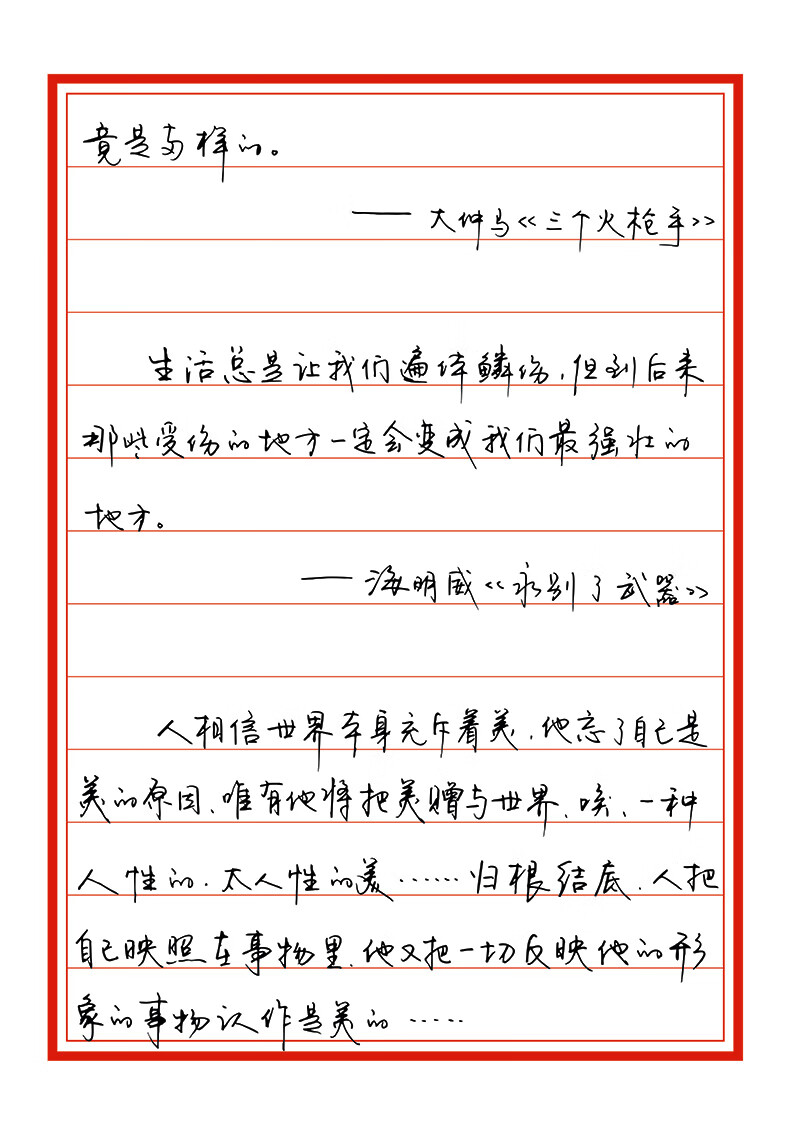 竟是两样的。
—— 大仲马《三个火枪手》
生活总是让我们遍体鳞伤，但到后来
那些受伤的地方一定会变成我们最强壮的
地方。
—— 海明威《永别了武器》
人相信世界本身充斥着美，他忘了自己是
美的原因、唯有他将把美赠与世界、唉、一种
人性的、太人性的美……归根结底，人把
自己映照在事物里、他又把一切反映他的形
象的事物认作是美的……